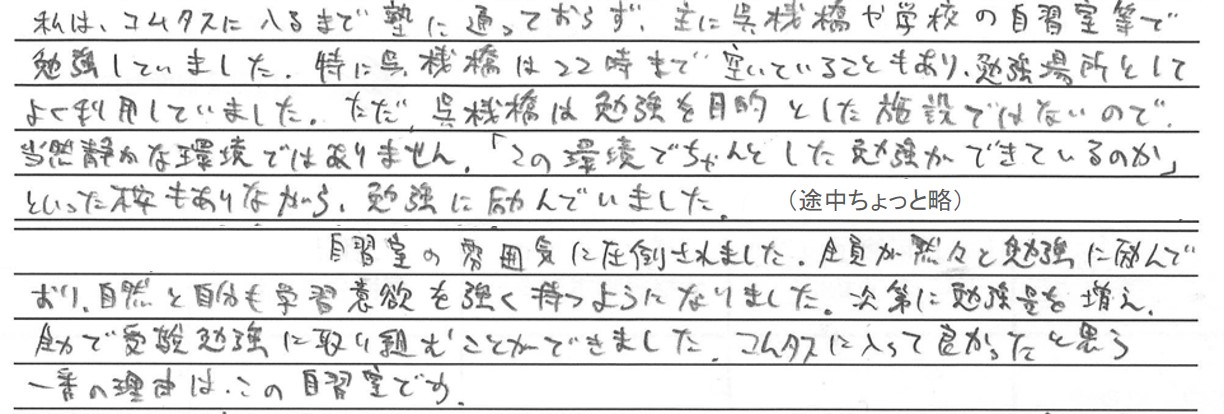 私は、コムタスに入るまで塾に通っておらず、主に呉桟橋や学校の自習室等で
勉強していました。特に呉桟橋は22時まで空いていることもあり、勉強場所として
よく利用していました。ただ、呉桟橋は勉強を目的とした施設ではないので、
当然静かな環境ではありません。「この環境でちゃんとした勉強ができているのか」
といった不安もありながら、勉強に励んでいました。 (途中ちょっと略)
自習室の雰囲気に圧倒されました。全員が黙々と勉強に励んで
おり、自然と自分も学習意欲を強く持つようになりました。次第に勉強量を増え、
全力で受験勉強に取り組むことができました。コムタスに入って良かったと思う
一番の理由は、この自習室です。